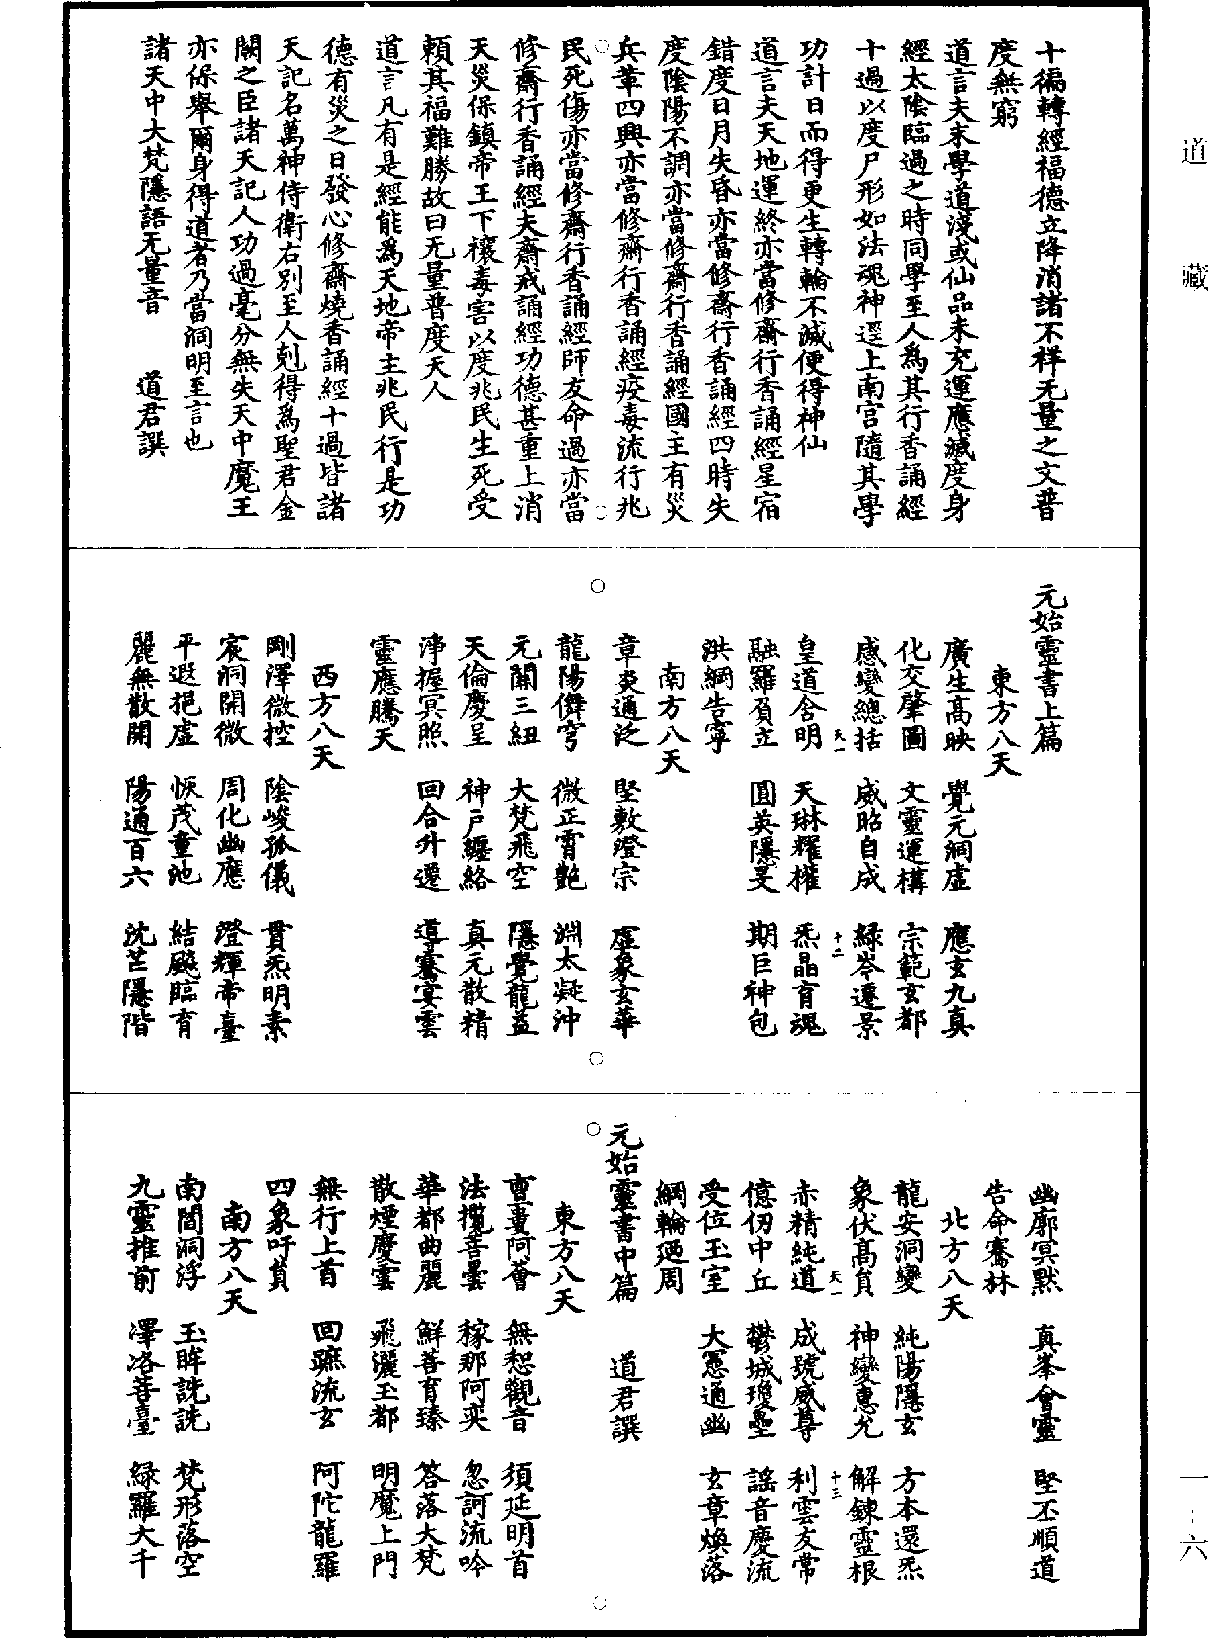 道藏
一-六
十徧轉經福德立降消諸不祥无量之文普
度無窮
道言夫末學道淺或仙品未充運應滅度身
經太陰臨過之時同學至人為其行香誦經
十過以度尸形如法魂神逕上南宮隨其學
功計日而得更生轉輪不滅便得神仙
道言夫天地運終亦當修齋行香誦經星宿
錯度日月失昏亦當修齋行香誦經四時失
度陰陽不調亦當修齋行香誦經國主有災
兵革四興亦當修齋行香誦經疫毒流行兆
民死傷亦當修齋行香誦經師友命過亦當
修齋行香誦經夫齋戒誦經功德甚重上消
天災保鎮帝王下禳毒害以度兆民生死受
賴其福難勝故曰无量普度天人
道言凡有是經能為天地帝主兆民行是功
德有災之日發心修齋燒香誦經十過皆諸
天記名萬神侍衛右別至人剋得為聖君金
闕之臣諸天記人功過毫分無失天中魔王
亦保舉爾身得道者乃當洞明至言也
諸天中大梵隱語无量音　道君譔
元始靈書上篇
東方八天
廣生高映　覺元洞虛　應玄九真
化交肇圖　文靈運構　宗範玄都
感變總括　威昭自成　綠岑遷景
天一　十二
皇道含明　天琳耀擢　炁晶育魂
融羅頁立　圓英隱旻　期巨神包
洪綱告寧
南方八天
章炎通泛　堅敷澄宗　虛象玄華
龍陽儛穹　微正霄艶　淵太凝沖
元開三紐　大梵飛空　隱覺龍益
天倫慶呈　神戶纏絡　真元散精
淨握冥照　回合升遷　導騫宴雲
靈應騰天
西方八天
剛澤微控　陰峻孤儀　貫炁明素
宸洞開微　周化幽應　澄輝帝臺
平遐挹虛　恢茂童池　結颷臨育
麗無散開　陽通百六　沈芒隱階
幽廓冥默　真峯會靈　堅丕順道
告命騫林
北方八天
龍安洞變　純陽隱玄　方本還炁
象伏高負　神變惠尤　解鍊靈根
天一　十三
赤精純道　成號威尊　利雲友常
億仞中丘　鬱城瓊壘　謠音慶流
受位玉室　大慁通幽　玄章煥落
綱輪迺周
元始靈書中篇　道君譔
東方八天
亶婁阿薈　無惒觀音　須延明首
法攬菩曇　稼那阿奕　忽訶流吟
華都曲麗　鮮菩育臻　答落大梵
散煙慶雲　飛灑玉都　明魔上門
無行上首　回蹠流玄　阿陀龍羅
四象吁員
南方八天
南閻洞浮　玉眸詵詵　梵形落空
九靈推前　澤洛菩臺　綠羅大千